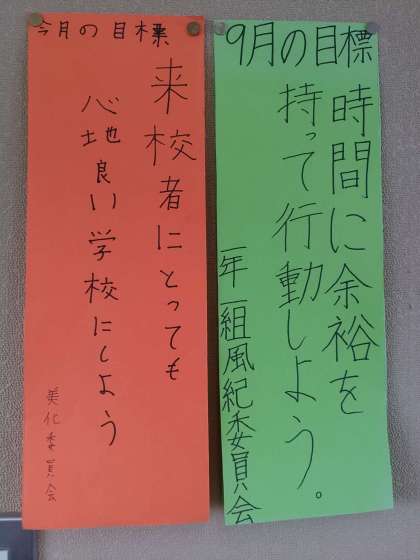 9月の目標
時間に余裕を
持って行動しよう。
一年一組風紀委員会
今月の目標
来校者にとっても
心地良い学校にしよう
美化委員会